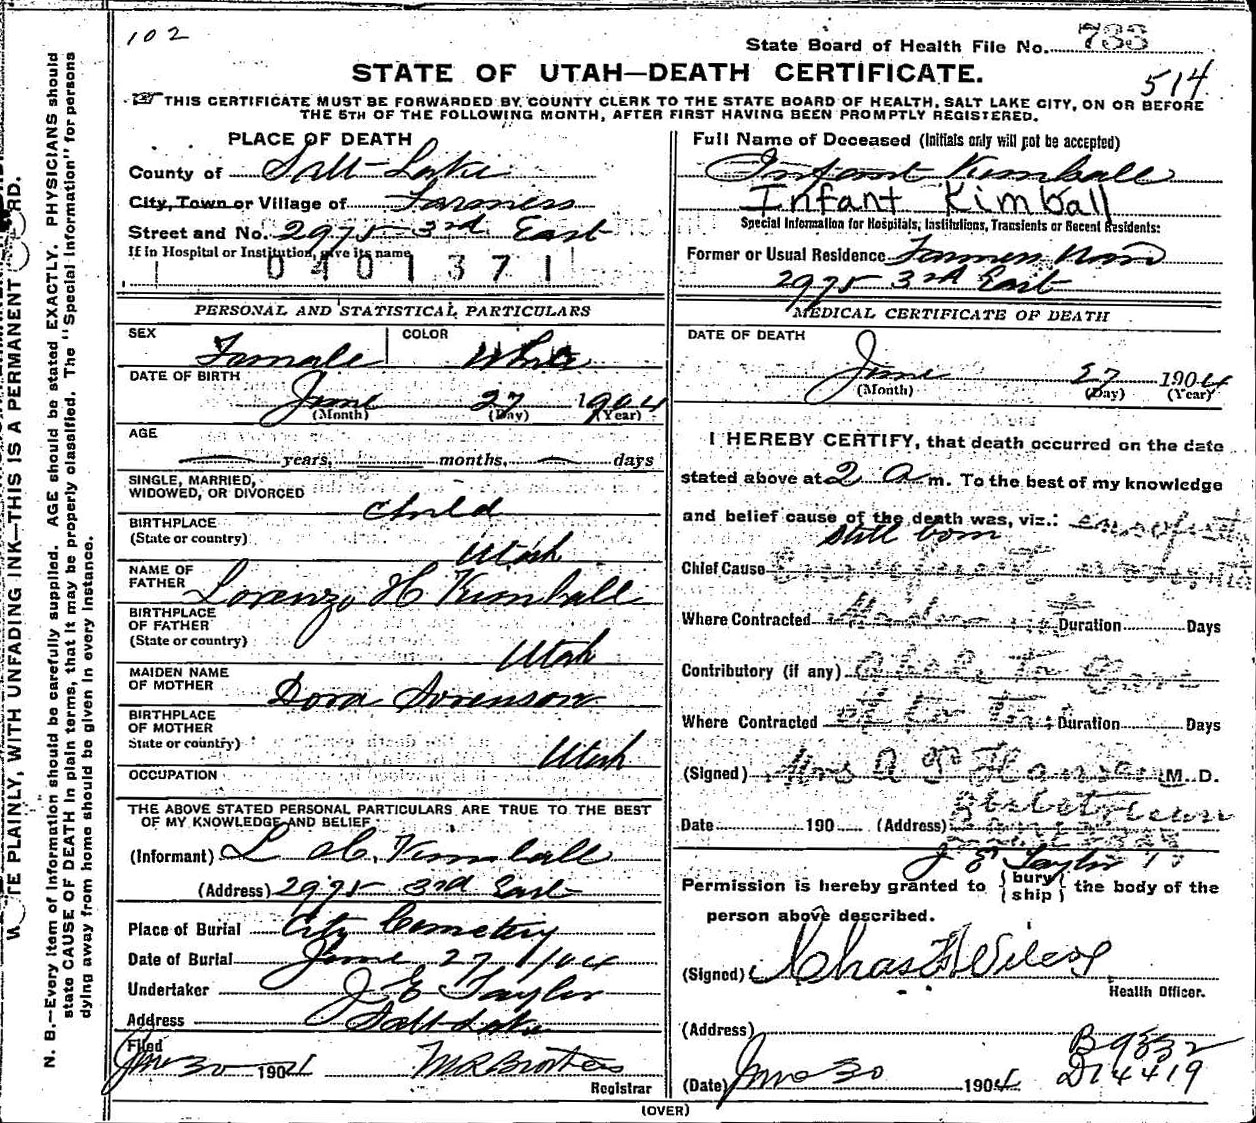 102
State Board of Health File No. 733
STATE OF UTAH—DEATH CERTIFICATE.
514
THIS CERTIFICATE MUST BE FORWARDED BY COUNTY CLERK TO THE STATE BOARD OF HEALTH, SALT LAKE CITY, ON OR BEFORE
THE 5TH OF THE FOLLOWING MONTH, AFTER FIRST HAVING BEEN PROMPTLY REGISTERED.
PLACE OF DEATH
County of Salt Lake
City, Town or Village of Farmers
Street and No. 2975 3rd East
If in Hospital or Institution, give its name
0401371
PERSONAL AND STATISTICAL PARTICULARS
SEX Famale COLOR White
DATE OF BIRTH
June 27 1904
(Month) (Day) (Year)
AGE
years, months, days
SINGLE, MARRIED,
WIDOWED, OR DIVORCED
Child
BIRTHPLACE
(State or country)
Utah
NAME OF
FATHER Lorenzo H Kimball
BIRTHPLACE
OF FATHER
(State or country)
Utah
MAIDEN NAME
OF MOTHER Dora Sorenson
BIRTHPLACE
OF MOTHER
State or country)
Utah
OCCUPATION
THE ABOVE STATED PERSONAL PARTICULARS ARE TRUE TO THE BEST
OF MY KNOWLEDGE AND BELIEF
(Informant) L H. Kimball
(Address) 2975 3rd East
Place of Burial City Cemetery
Date of Burial June 27 1904
Undertaker J E Taylor
Address Salt Lake
Filed
June 30 1904
Registrar
Full Name of Deceased (Initials only will not be accepted)
Infant Kimball
Infant Kimball
Special Information for Hospitals, Institutions, Transients or Recent Residents:
Former or Usual Residence Farmers Ward
2975 3rd East
MEDICAL CERTIFICATE OF DEATH
DATE OF DEATH
June 27 1904
(Month) (Day) (Year)
I HEREBY CERTIFY, that death occurred on the date
stated above at 2 a m. To the best of my knowledge
and belief cause of the death was, viz.:
Still born
Chief Cause
Where Contracted Duration Days
Contributory (if any)
Where Contracted Duration Days
(Signed) Mrs A P Hansen M. D.
Date 190 (Address)
J E Taylor
Permission is hereby granted to { bury ship } the body of the
person above described.
(Signed) Chas
Health Officer.
(Address)
B9332
(Date) June 30 1904 D14419
(OVER)
WRITE PLAINLY, WITH UNFADING INK—THIS IS A PERMANENT RECORD.
N. B.—Every item of information should be carefully supplied. AGE should be stated EXACTLY. PHYSICIANS should
state CAUSE OF DEATH in plain terms, that it may be properly classified. The "Special Information" for persons
dying away from home should be given in every instance.